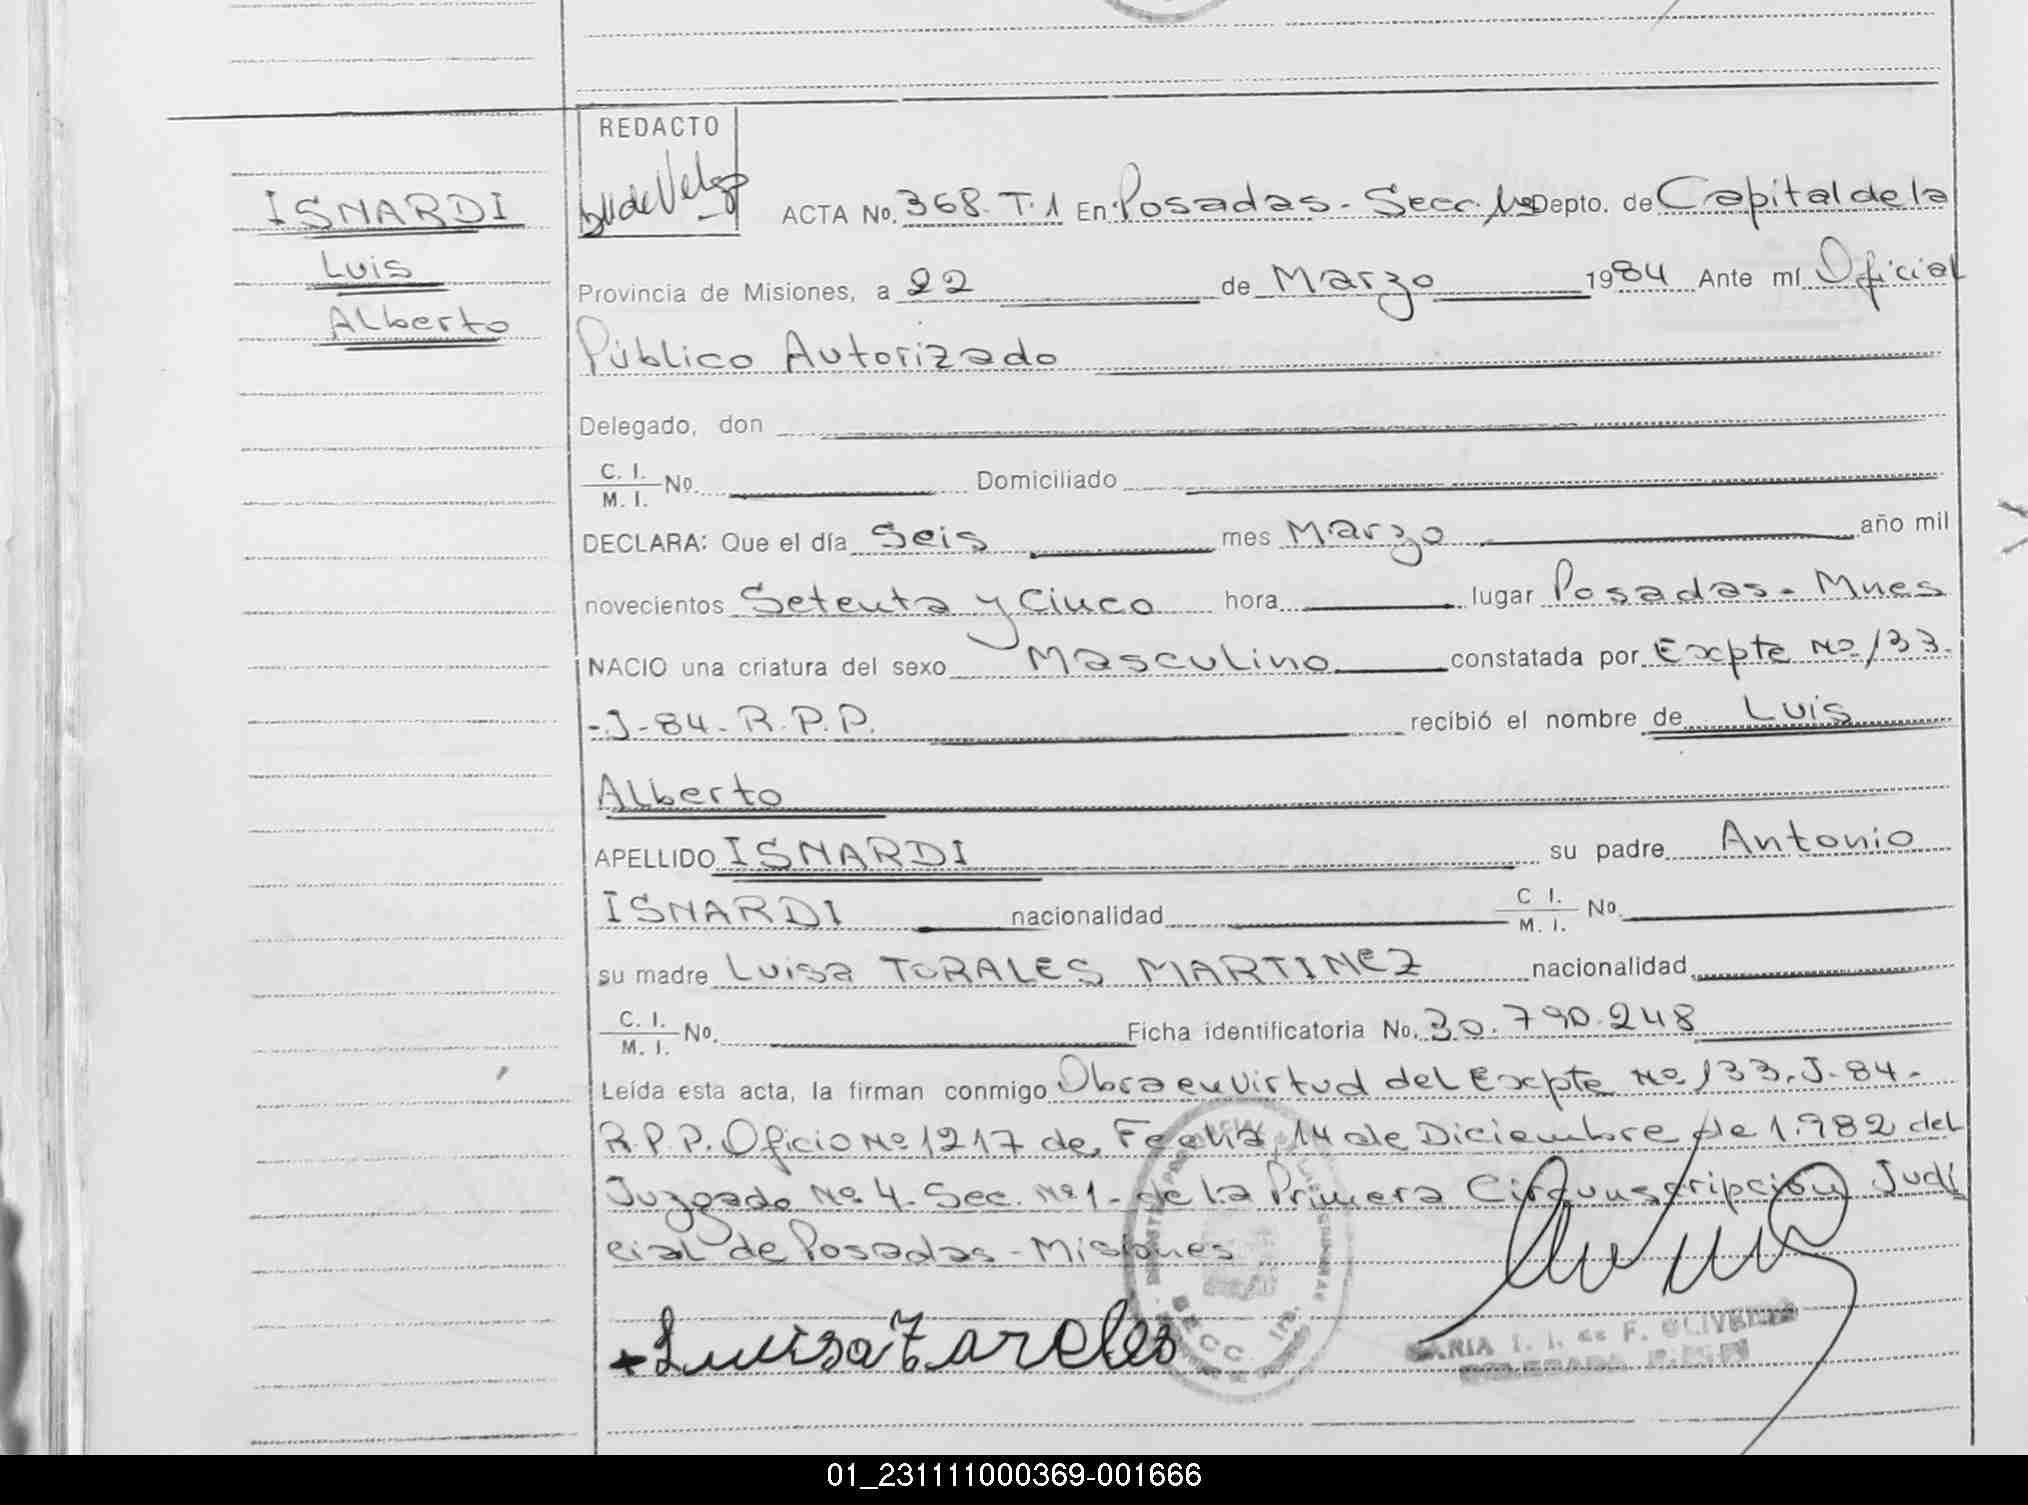 REDACTO
ISNARDI
Luis
Alberto
ACTA No. 368. T.1 En Posadas - Secc. 1ra Depto. de Capital de la
Provincia de Misiones, a 22 de Marzo 1984 Ante mí Oficial
Público Autorizado
Delegado, don
C. I. / M. I. No. Domiciliado
DECLARA: Que el día Seis mes Marzo año mil
novecientos Setenta y Cinco hora lugar Posadas - Mnes
NACIO una criatura del sexo Masculino constatada por Excpte Nº 133.
-J-84- R.P.P. recibió el nombre de Luis
Alberto
APELLIDO ISNARDI su padre Antonio
ISNARDI nacionalidad C I. / M. I. No.
su madre Luisa TORALES MARTINEZ nacionalidad
C. I. / M. I. No. Ficha identificatoria No. 30.790.248
Leída esta acta, la firman conmigo Obra en virtud del Excpte Nº 133. J-84-
R.P.P. Oficio Nº 1217 de Fecha 14 de Diciembre de 1.982 del
Juzgado Nº 4- Sec. Nº 1- de la Primera Circunscripción Judi
cial de Posadas - Misiones
Luisa Tarales
SECC. 1RA.
MARIA I. I. de F. OLIVEIRA
01_231111000369-001666